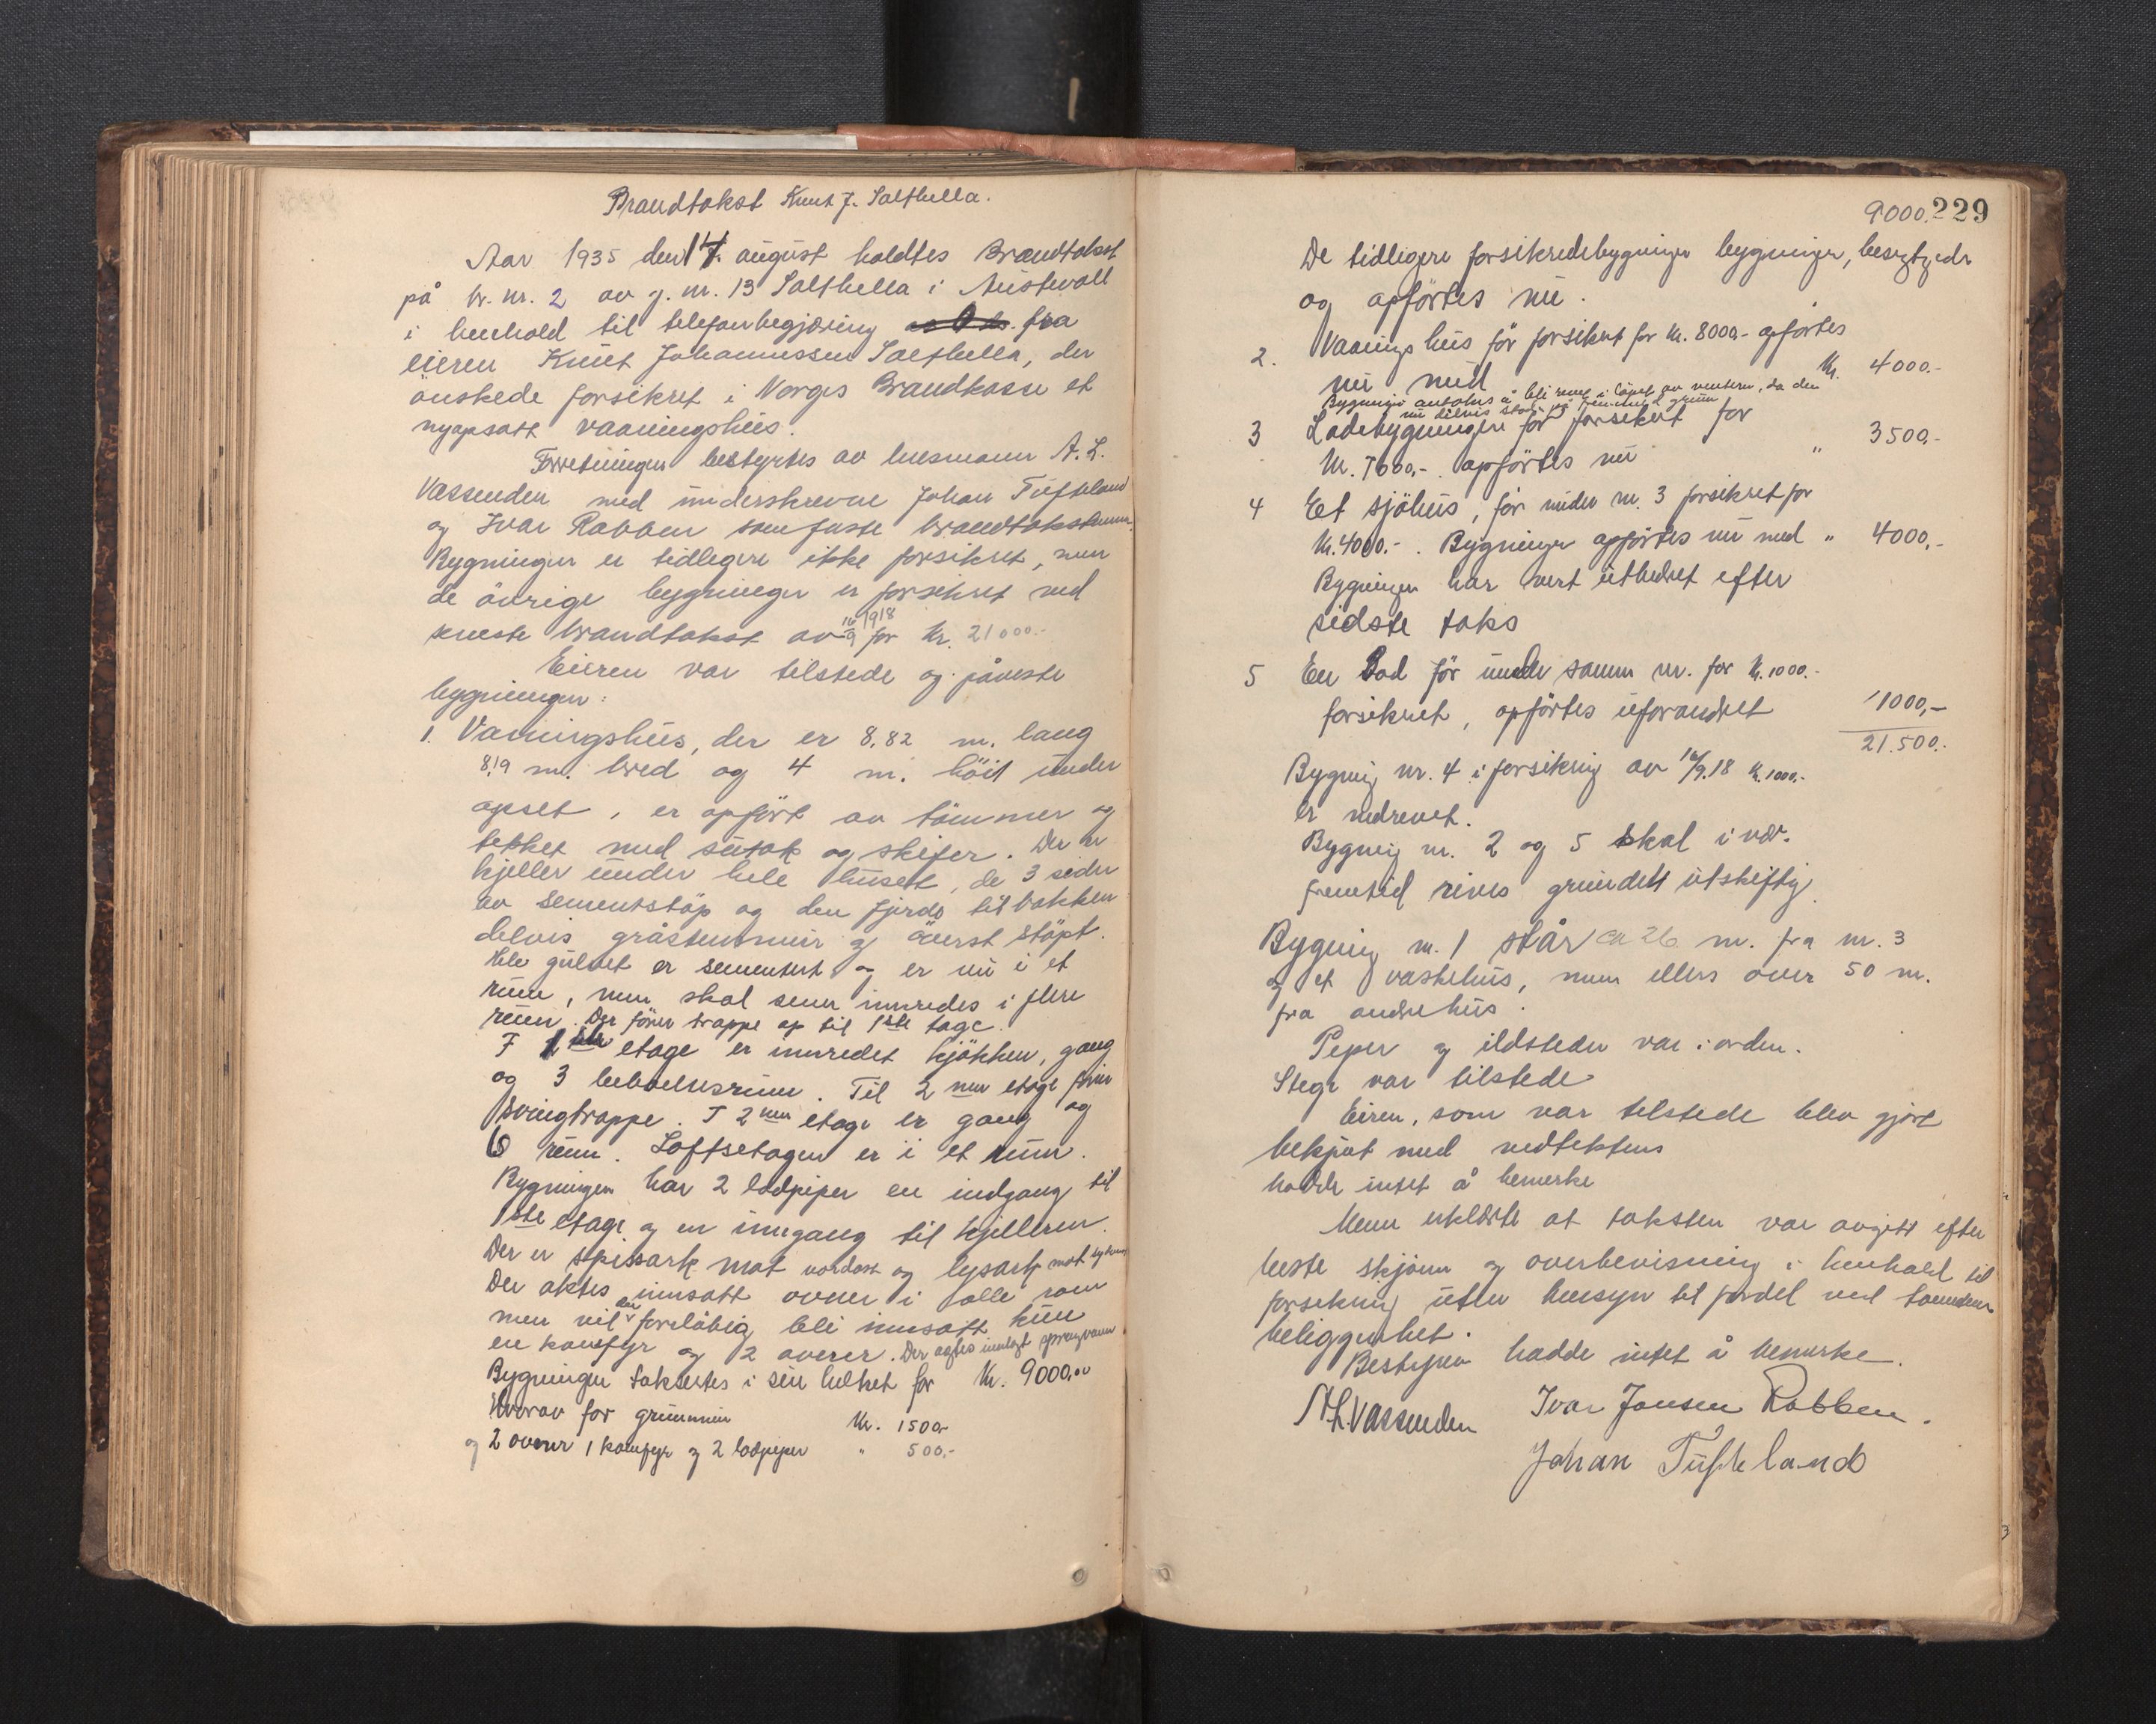 Brandtakst Knut J. Salthella.
Aar 1935 den 14. august holdtes Brandtakst
på br. nr. 2 av g. nr. 13 Salthella i Austevoll
i henhold til telefonbegjæring fra
eieren Knut Johannessen Salthella, der
önskede forsikret i Norges Brandkasse et
nyopsatt vaaningshus.
Forretningen bestyrtes av lensmann A. L.
Vassenden med underskrevne Johan Tufteland
og Ivar Rabben som faste brandtakstmenn.
Bygningen er tidligere ikke forsikret, men
de övrige bygninger er forsikret ved
seneste brandtakst av 10/9 1918 for Kr. 21000.-
Eieren var tilstede og påviste
bygningen:
1. Vaaningshus, der er 8,82 m. lang
8,19 m. bred og 4 m. höit under
opset, er opfört av tömmer og
tekket med sutak og skifer. Der er
kjeller under hele huset, de 3 sider
av sementstöp og den fjerde til bakken
delvis gråstensmur og överst stöpt.
Hele gulvet er sementert og er nu i et
rum, men skal senere innredes i flere
rum. Der förer trappe op til 1ste tage.
I 1ste etage er innredet kjökken, gang
og 3 beboelsesrum. Til 2nen etage förer
svingtrappe. I 2nen etage er gang og
6 rum. Loftsetagen er i et rum.
Bygningen har 2 lodpiper en indgang til
1ste etage og en inngang til kjelleren.
Der er spissark mot nordost og lysark mot sydvest
Der aktes innsatt ovner i alle rom
men vil der foreløbig bli innsatt kun
en komfyr og 2 ovner. Der agtes innlagt springvann.
Bygningen takseres i sin helhet for Kr. 9000,00
Hvorav for grunnmur Kr. 1500,-
og 2 ovner 1 komfyr og 2 lodpiper " 500,-
9000. 229
De tidligere forsikredebygninger bygninger, besigtigedes
og opförtes nu.
2. Vaaningshus för forsikret for kr. 8000,- opförtes
nu med Kr. 4000.-
Bygningen antakes å bli revet i löpet av vinteren, da den
nu delvis står på fremmed grunn
3 Ladebygningen för forsikret for
Kr. 7000,- opförtes nu " 3500,-
4 Et sjöhus, för under nr. 3 forsikret for
Kr. 4000.-. Bygningen opförtes nu med " 4000,-
Bygningen har vert utbedret efter
sidste taks
5 En Bod för under samme nr. for kr. 1000.-
forsikret, opförtes uforandret 1000,-
21.500.-
Bygnig nr. 4 i forsikrig av 10/9.18 kr. 1000,-
er nedrevet.
Bygnig nr. 2 og 5 skal i nær-
fremtid rives grundett utskiftig.
Bygning nr. 1 står ca 26 m. fra nr. 3
og et vaskehus, men ellers over 50 m.
fra andre hus.
Peper og ildsteder var i orden.
Stege var tilstede
Eiren, som var tilstede blev gjort
bekjent med vedtektens
hadde intet å bemerke
Menn erklærte at taksten var avgitt efter
beste skjönn og overbevisning i henhold til
forsikrng uten hensyn til fordel ved tomtens
beliggenhet.
Bestyren hadde intet å bemerke.
A. L. Vassenden Ivar Jansen Rabben.
Johan Tufteland